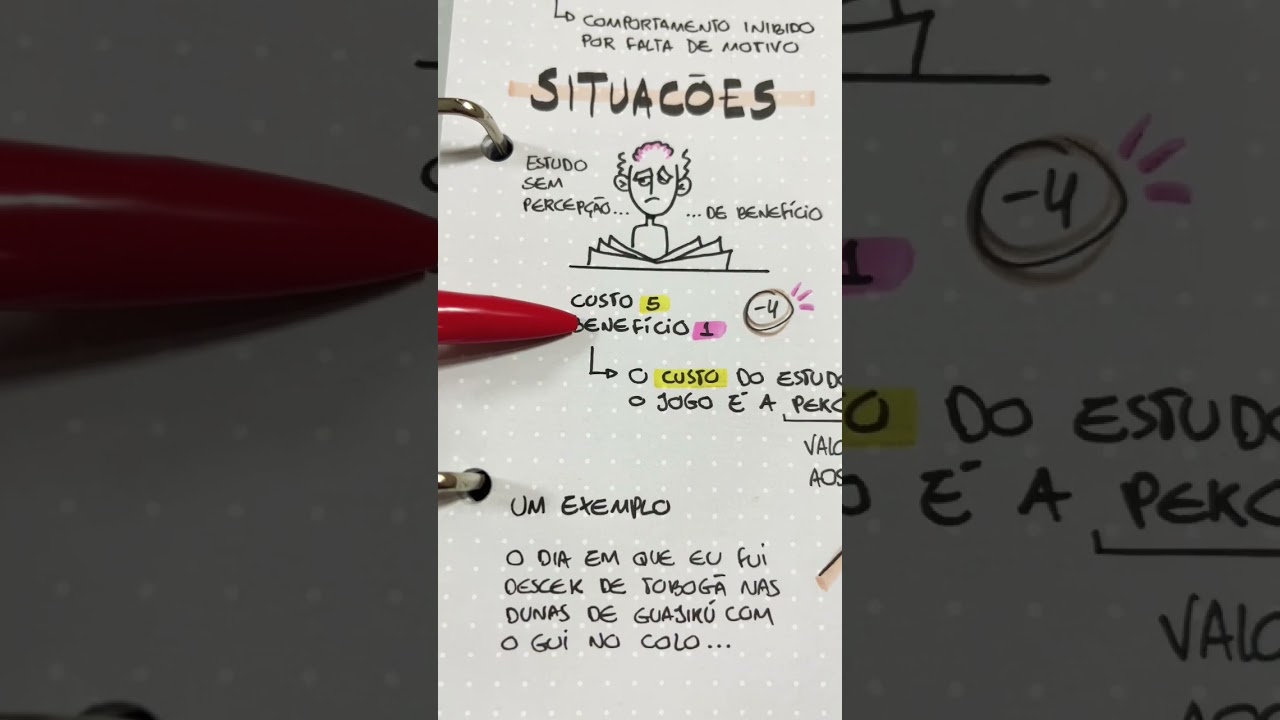 COMPORTAMENTO INIBIDO
POR FALTA DE MOTIVO
SITUACÕES
ESTUDO
SEM
PERCEPÇÃO... ...DE BENEFÍCIO
CUSTO 5
BENEFÍCIO 1
-4
O CUSTO DO ESTUDO
O JOGO É A
UM EXEMPLO
O DIA EM QUE EU FUI
DESCER DE TOBOGÃ NAS
DUNAS DE GUAJIRÚ COM
O GUI NO COLO...